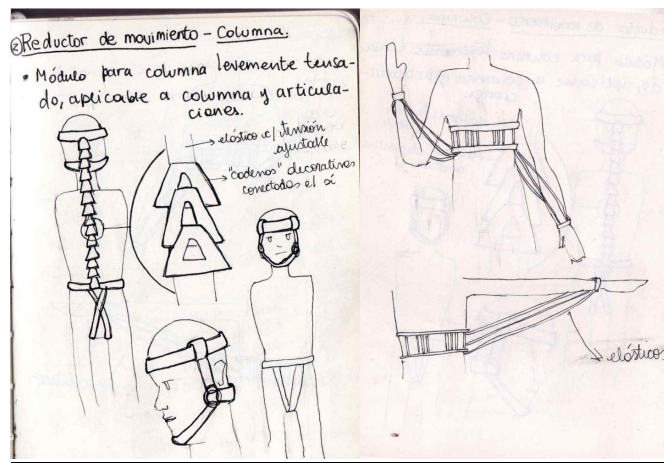 ② Reductor de movimiento - Columna.
• Módulo para columna levemente tensa-
do, aplicable a columna y articula-
ciones.
→ elástico c/ tensión
ajustable
→ "cadenas" decorativas
conectadas el sí
elásticos